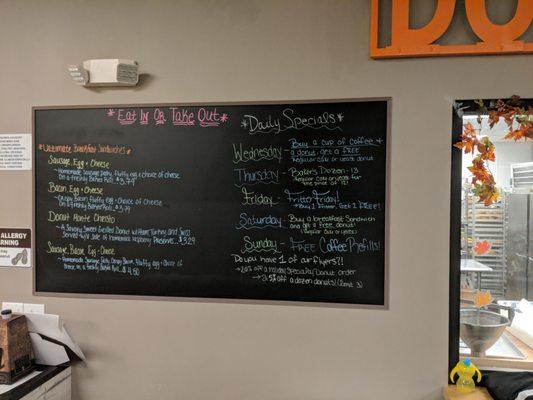 DO
*Eat In Or Take Out*
*Ultimate Breakfast Sandwiches*
Sausage, Egg + Cheese
- Homemade Sausage Patty, fluffy egg + choice of cheese
on a freshly Baked Roll! $3.79
Bacon, Egg + Cheese
- Crispy Bacon, fluffy egg + Choice of Cheese
on a freshly Baked Roll! $3.79
Donut Monte Christo
- A Savory Sweet Grilled Donut w/ Ham, Turkey and Swiss
Served w/ a side of homemade raspberry Preserves $3.29
Sausage, Bacon, Egg + Cheese
- Homemade Sausage Patty, Crispy Bacon, fluffy egg + choice of
cheese, in a freshly Baked Roll $4.50
*Daily Specials*
Wednesday - Buy a cup of Coffee +
a donut, get a FREE
Regular cake or yeast donut
Thursday - Baker's Dozen - 13
Regular cake or yeast for
the price of 12!
Friday - Fritter Friday!
Buy 1 Fritter, Get 1 FREE!
Saturday - Buy a breakfast Sandwich
and get a Free Donut!
(Regular cake or yeast)
Sunday - FREE Coffee Refills!
Do you have 1 of our flyers?!
→ 20% off a Holiday Specialty Donut order
→ $.50 off a dozen donuts! (limit 3)
ALLERGY
WARNING